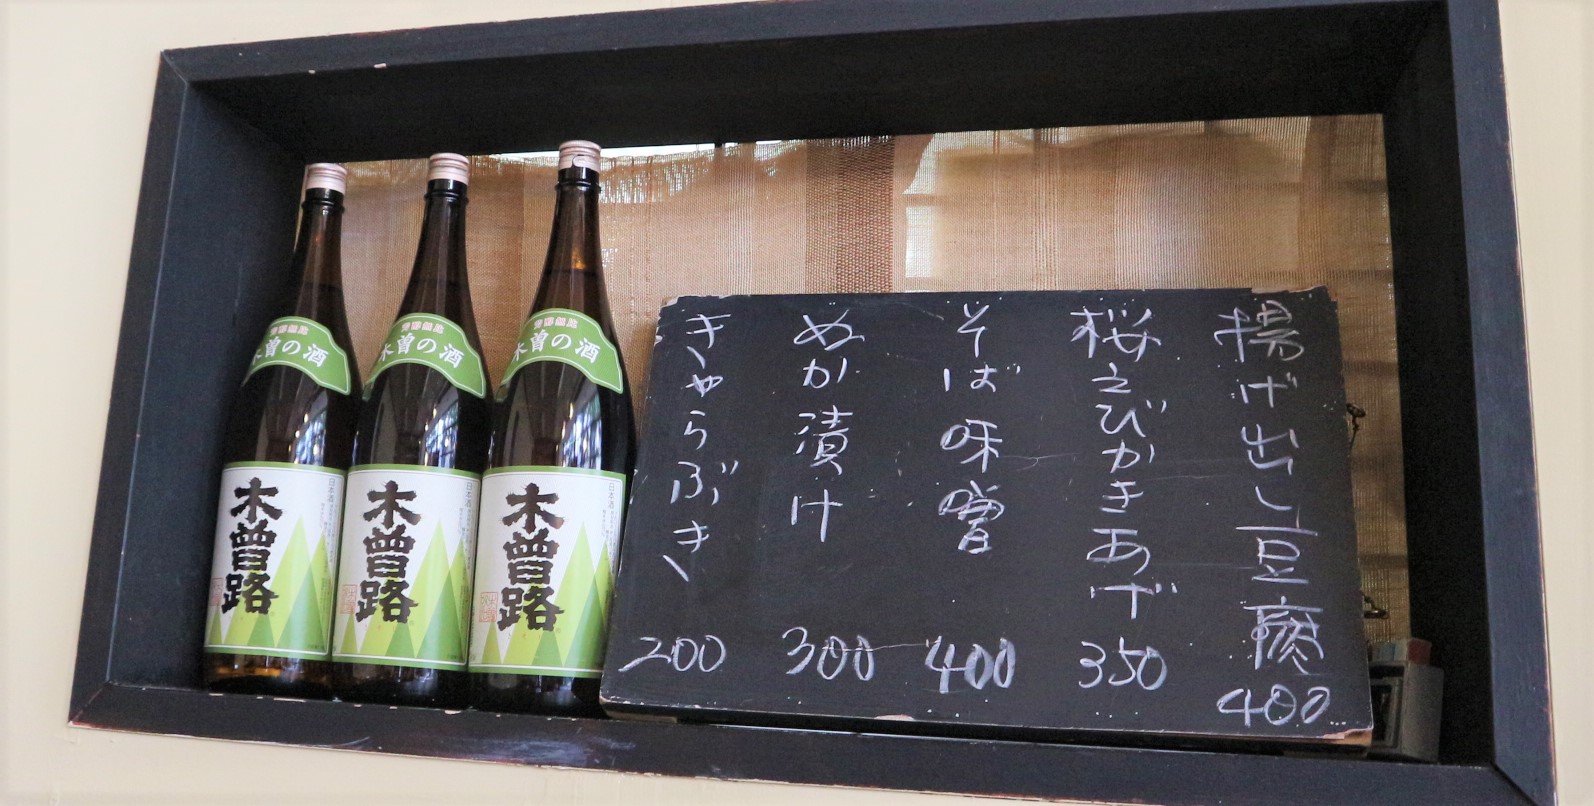 揚げ出し豆腐
400
桜えびかきあげ
350
そば味噌
400
ぬか漬け
300
きゃらぶき
200
木曽の酒
木曽路
日本酒
木曽の酒
木曽路
日本酒
木曽の酒
木曽路
日本酒